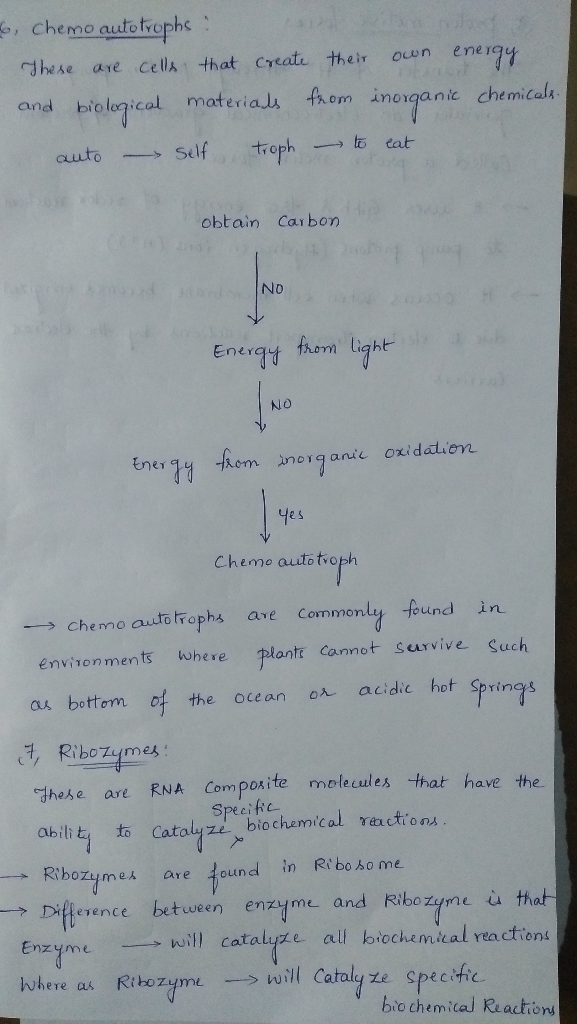 6, Chemoautotrophs :
These are cells that create their own energy
and biological materials from inorganic chemicals.
auto → Self troph → to eat
obtain Carbon
NO
Energy from light
NO
Energy from inorganic oxidation
Yes
Chemoautotroph
→ chemoautotrophs are commonly found in
environments where plants cannot survive such
as bottom of the ocean or acidic hot springs
7, Ribozymes:
These are RNA composite molecules that have the
specific
ability to catalyze biochemical reactions.
→ Ribozymes are found in Ribosome
→ Difference between enzyme and Ribozyme is that
Enzyme → will catalyze all biochemical reactions
Where as Ribozyme → will Catalyze specific
biochemical Reactions